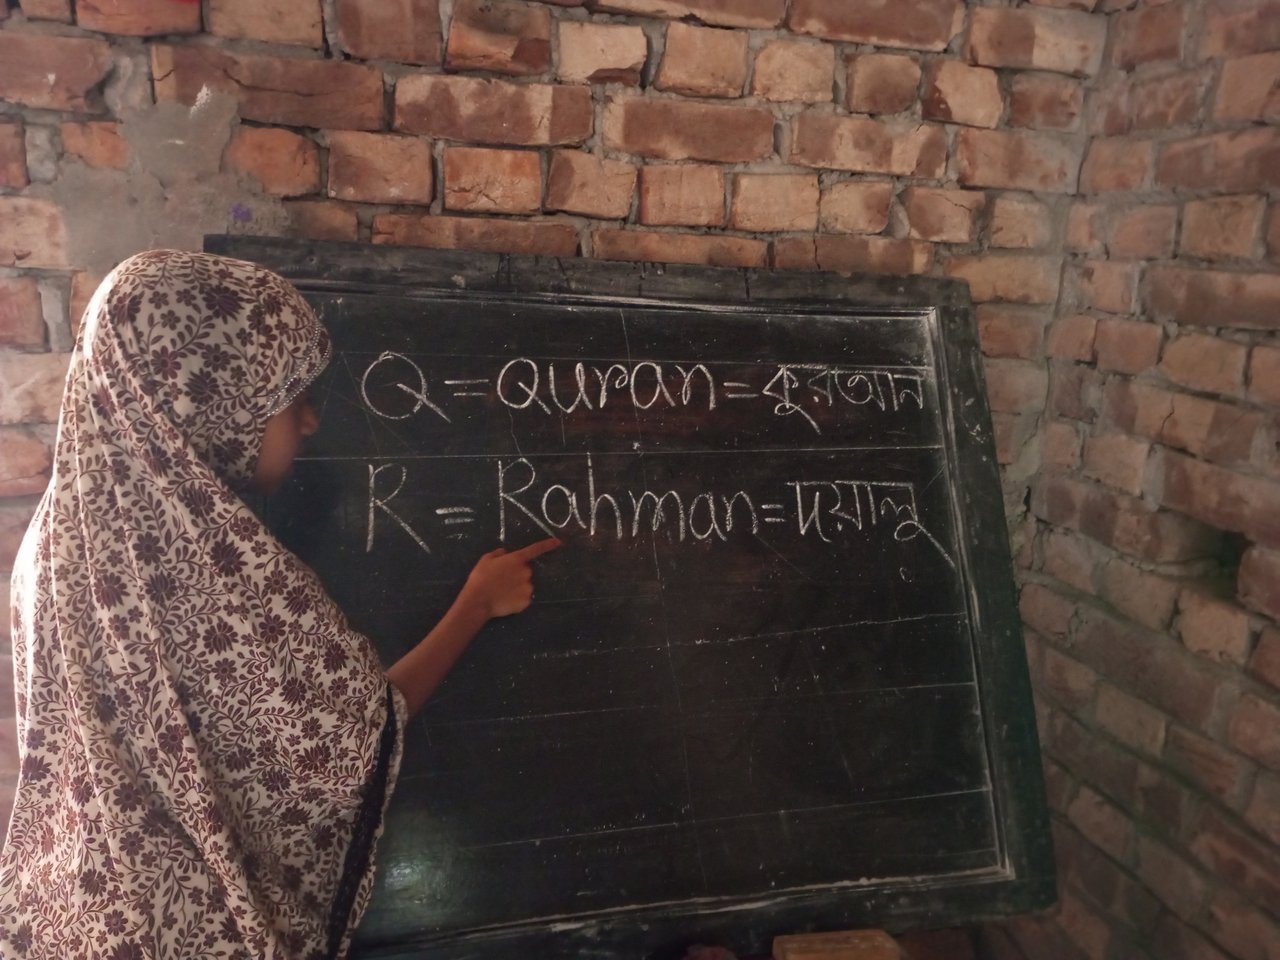 Q = Quran = কুরআন
R = Rahman = দয়ালু